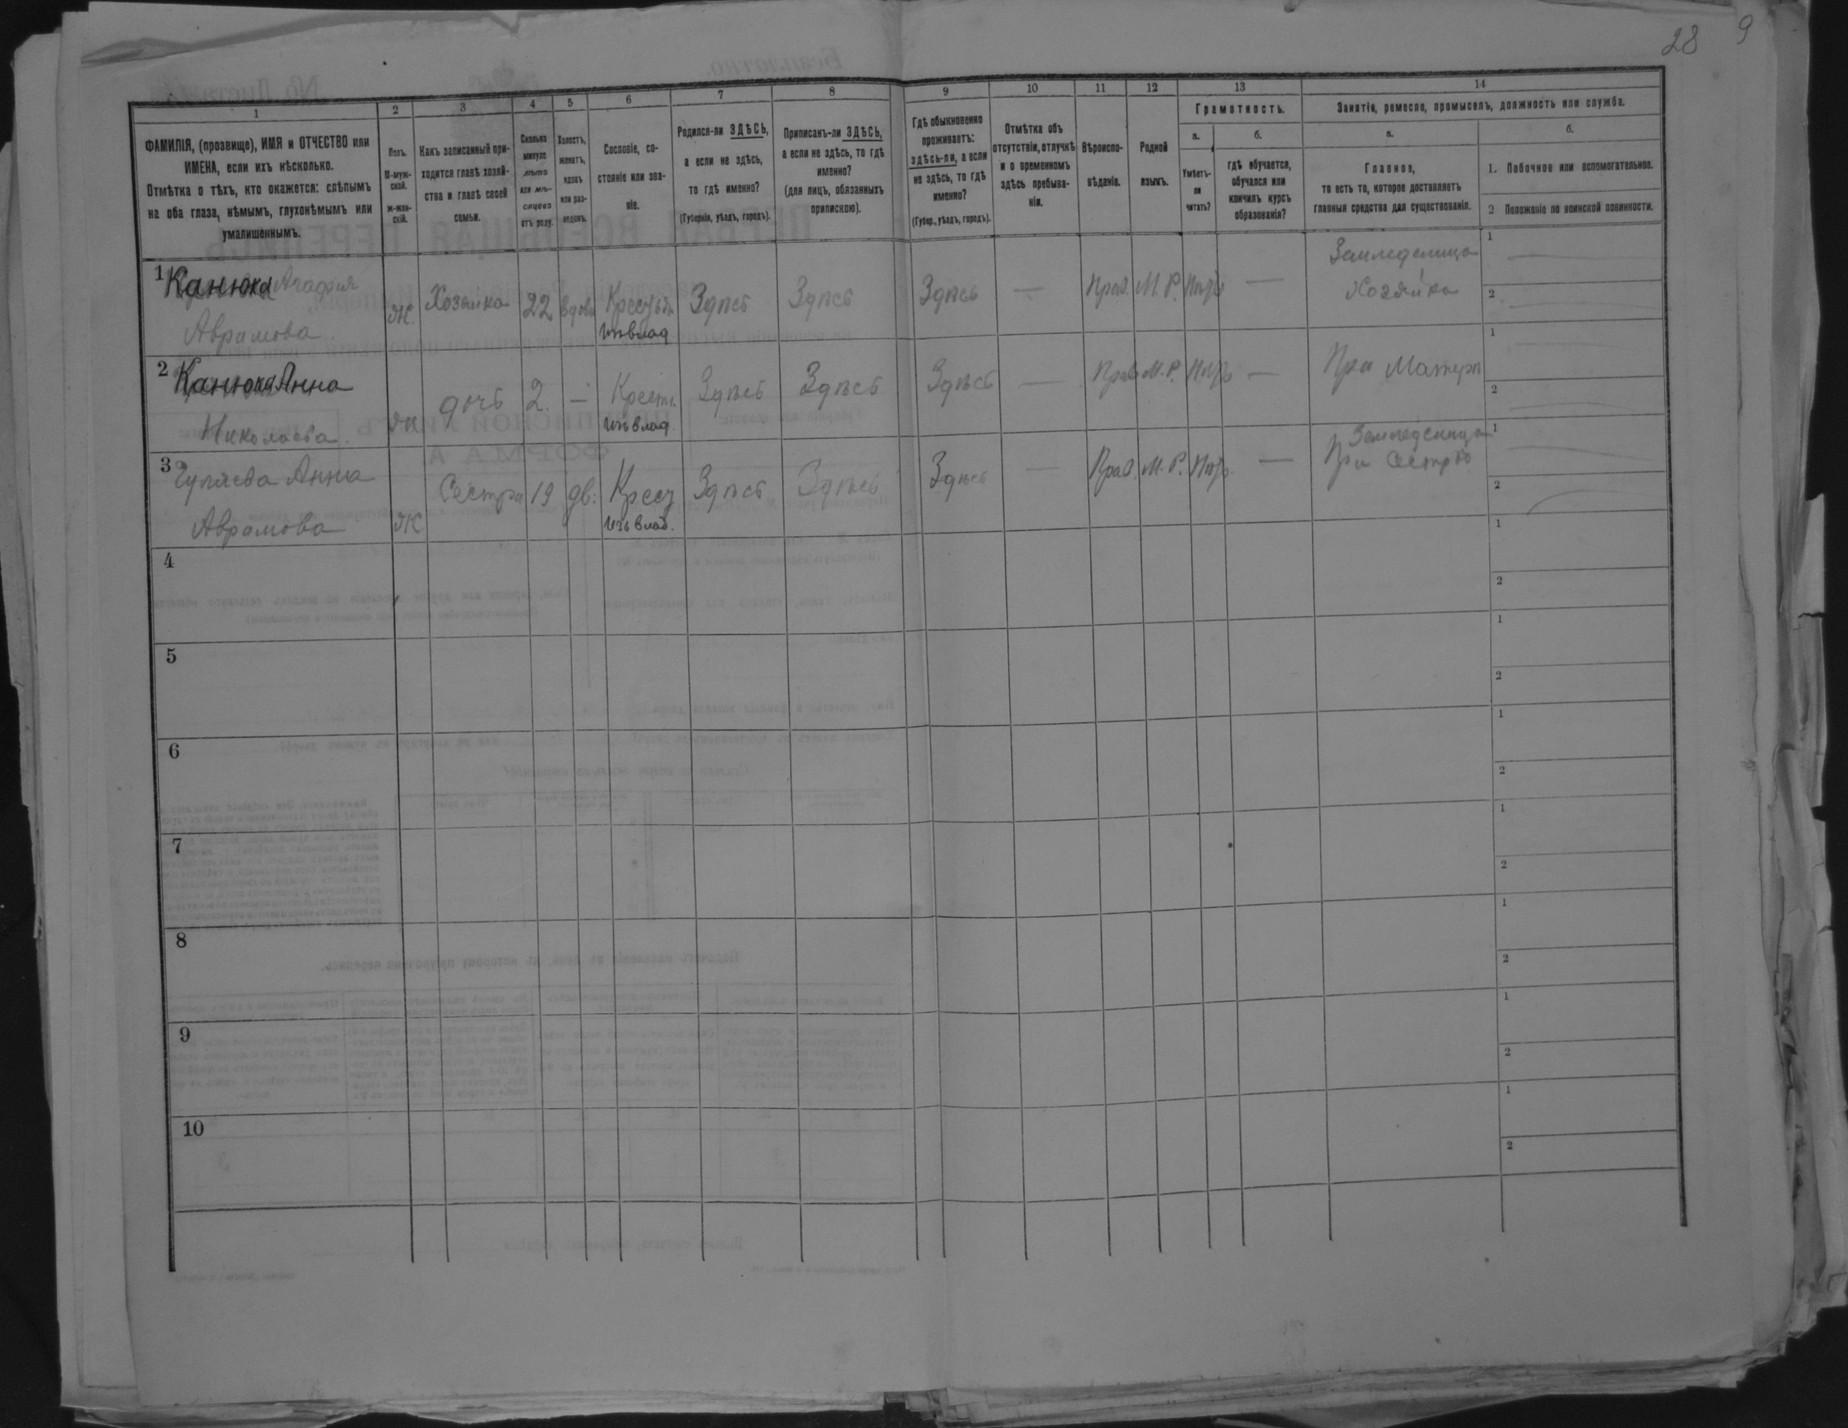 28 9
1 2 3 4 5 6 7 8 9 10 11 12 13 14
ФАМИЛІЯ, (прозвище), ИМЯ и ОТЧЕСТВО или
ИМЕНА, если ихъ нѣсколько.
Отмѣтка о тѣхъ, кто окажется: слѣпымъ
на оба глаза, нѣмымъ, глухонѣмымъ или
умалишеннымъ.
Полъ.
М-муж-
ской.
Ж-жен-
скій.
Какъ записанный при-
ходится главѣ хозяй-
ства и главѣ своей
семьи.
Сколько
минуло
лѣтъ
или мѣ-
сяцевъ
отъ роду.
Холостъ,
женатъ,
вдовъ
или раз-
веденъ.
Сословіе, со-
стояніе или зва-
ніе.
Родился-ли ЗДѢСЬ,
а если не здѣсь,
то гдѣ именно?
(Губернія, уѣздъ, городъ).
Приписанъ-ли ЗДѢСЬ,
а если не здѣсь, то гдѣ
именно?
(для лицъ, обязанныхъ
припискою).
Гдѣ обыкновенно
проживаетъ:
здѣсь-ли, а если
не здѣсь, то гдѣ
именно?
(Губер., уѣздъ, городъ).
Отмѣтка объ
отсутствіи, отлучкѣ
и о временномъ
здѣсь пребыва-
ніи.
Вѣроиспо-
вѣданіе.
Родной
языкъ.
Грамотность.
а.
Умѣетъ-
ли
читать?
б.
гдѣ обучается,
обучался или
кончилъ курсъ
образованія?
Занятіе, ремесло, промыселъ, должность или служба.
а.
Главное,
то есть то, которое доставляетъ
главныя средства для существованія.
б.
1. Побочное или вспомогательное.
2 Положеніе по воинской повинности.
1 Канюка Агафия
Аврамова
Ж. Хозяйка 22 вдова Крест.
изъ влад
Здѣсь Здѣсь Здѣсь — Прав. М. Р. — Земледелица
Хозяйка
1
2
2 Канюка Анна
Николаева
дочь 2. — Крест.
изъ влад.
Здѣсь Здѣсь Здѣсь — Прав М. Р. — При Матери
1
2
3 Анна
Аврамова
Ж Сестра 19 дв. Крест
изъ влад.
Здѣсь Здѣсь Здѣсь — Прав. М. Р. — Земледелица
При Сестрѣ
1
2
4 1
2
5 1
2
6 1
2
7 1
2
8 1
2
9 1
2
10 1
2